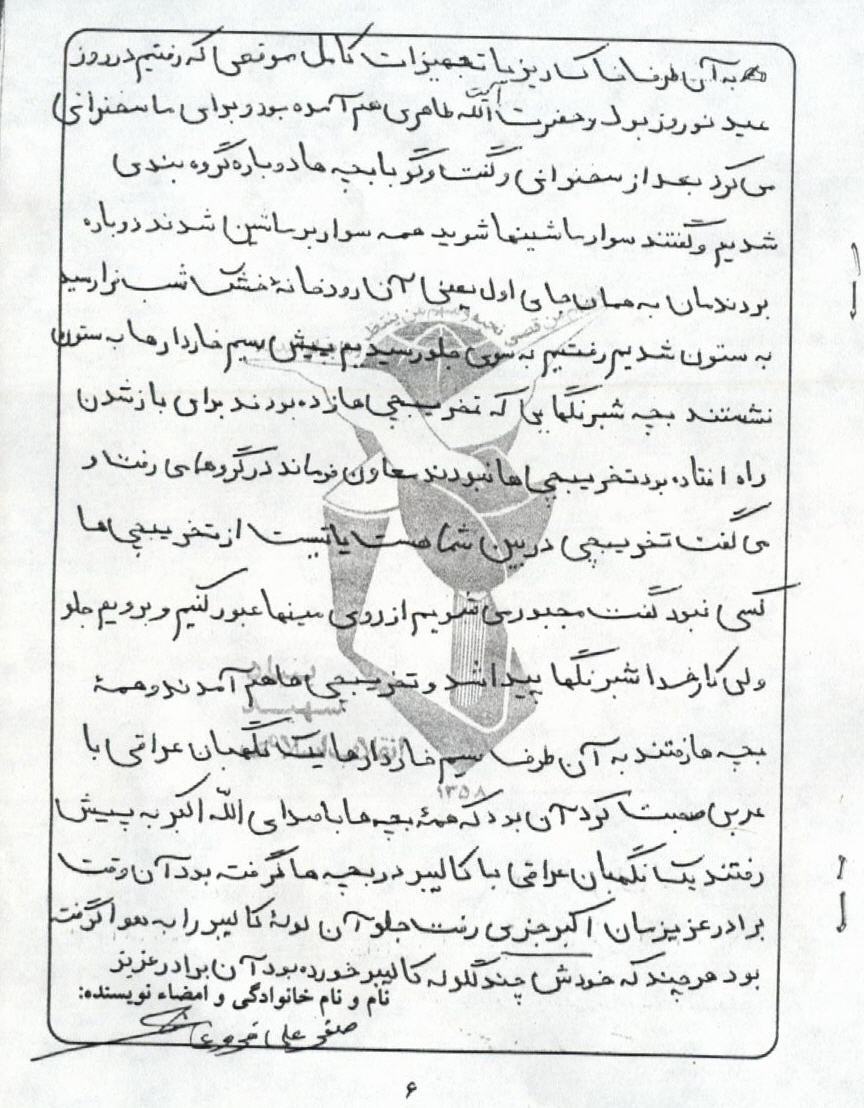 به آن طرف خاکریز با تجهیزات کامل موقعی که رفتیم در روز
عید نوروز بود و حضرت آیت الله طاهری هم آمده بود و برای ما سخنرانی
می کرد بعد از سخنرانی و گفت و گو با بچه ها دوباره گروه بندی
شدیم و گفتند سوار ماشینها شوید همه سوار بر ماشین شدند دوباره
بردندمان به همان جای اول یعنی آن رودخانهٔ خشک شب فرا رسید
به ستون شدیم رفتیم به سوی جلو رسیدیم پیش سیم خاردارها به ستون
نشستند بچه شبرنگهایی که تخریبچی ها زده بودند برای باز شدن
راه افتاده بود تخریبچی ها نبودند معاون فرمانده در گروههای رفت و
می گفت تخریبچی در بین شما هست یا نیست از تخریبچی ها
کسی نبود گفت مجبور می شویم از روی مینها عبور کنیم و برویم جلو
ولی کار خدا شبرنگها پیدا شد و تخریبچی ها هم آمدند و همهٔ
بچه ها رفتند به آن طرف سیم خاردارها یک نگهبان عراقی با
عربی صحبت کرد آن بود که همهٔ بچه ها با صدای الله اکبر به پیش
رفتند یک نگهبان عراقی با کالیبر در بچه ها گرفته بود آن وقت
برادر عزیزمان اکبر جزی رفت جلو آن لولهٔ کالیبر را به هوا گرفت
بود هر چند که خودش چند گلوله کالیبر خورده بود آن برادر عزیز
نام و نام خانوادگی و امضاء نویسنده:
صفر علی
۱۳۵۸
۶